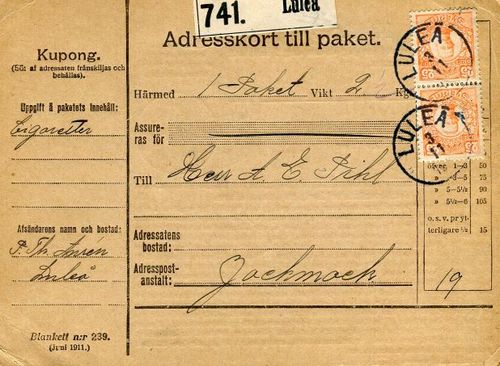 741. Luleå
Kupong.
(Bör af adressaten frånskiljas och
behållas).
Uppgift å paketets innehåll:
Cigaretter
Afsändarens namn och bostad:
Luleå
Blankett n:r 239.
(Juni 1911.)
Adresskort till paket.
Härmed 1 Paket Vikt 2
Assure-
ras för
Till Herr A E Pihl
Adressatens
bostad:
Adresspost-
anstalt: Jockmock.
LULEÅ
3
11
LULEÅ
3
11
öfver 1–3 50
» 3–5 75
» 5–5½ 90
» 5½–6 105
o. s. v. pr yt-
terligare ½ 15
19